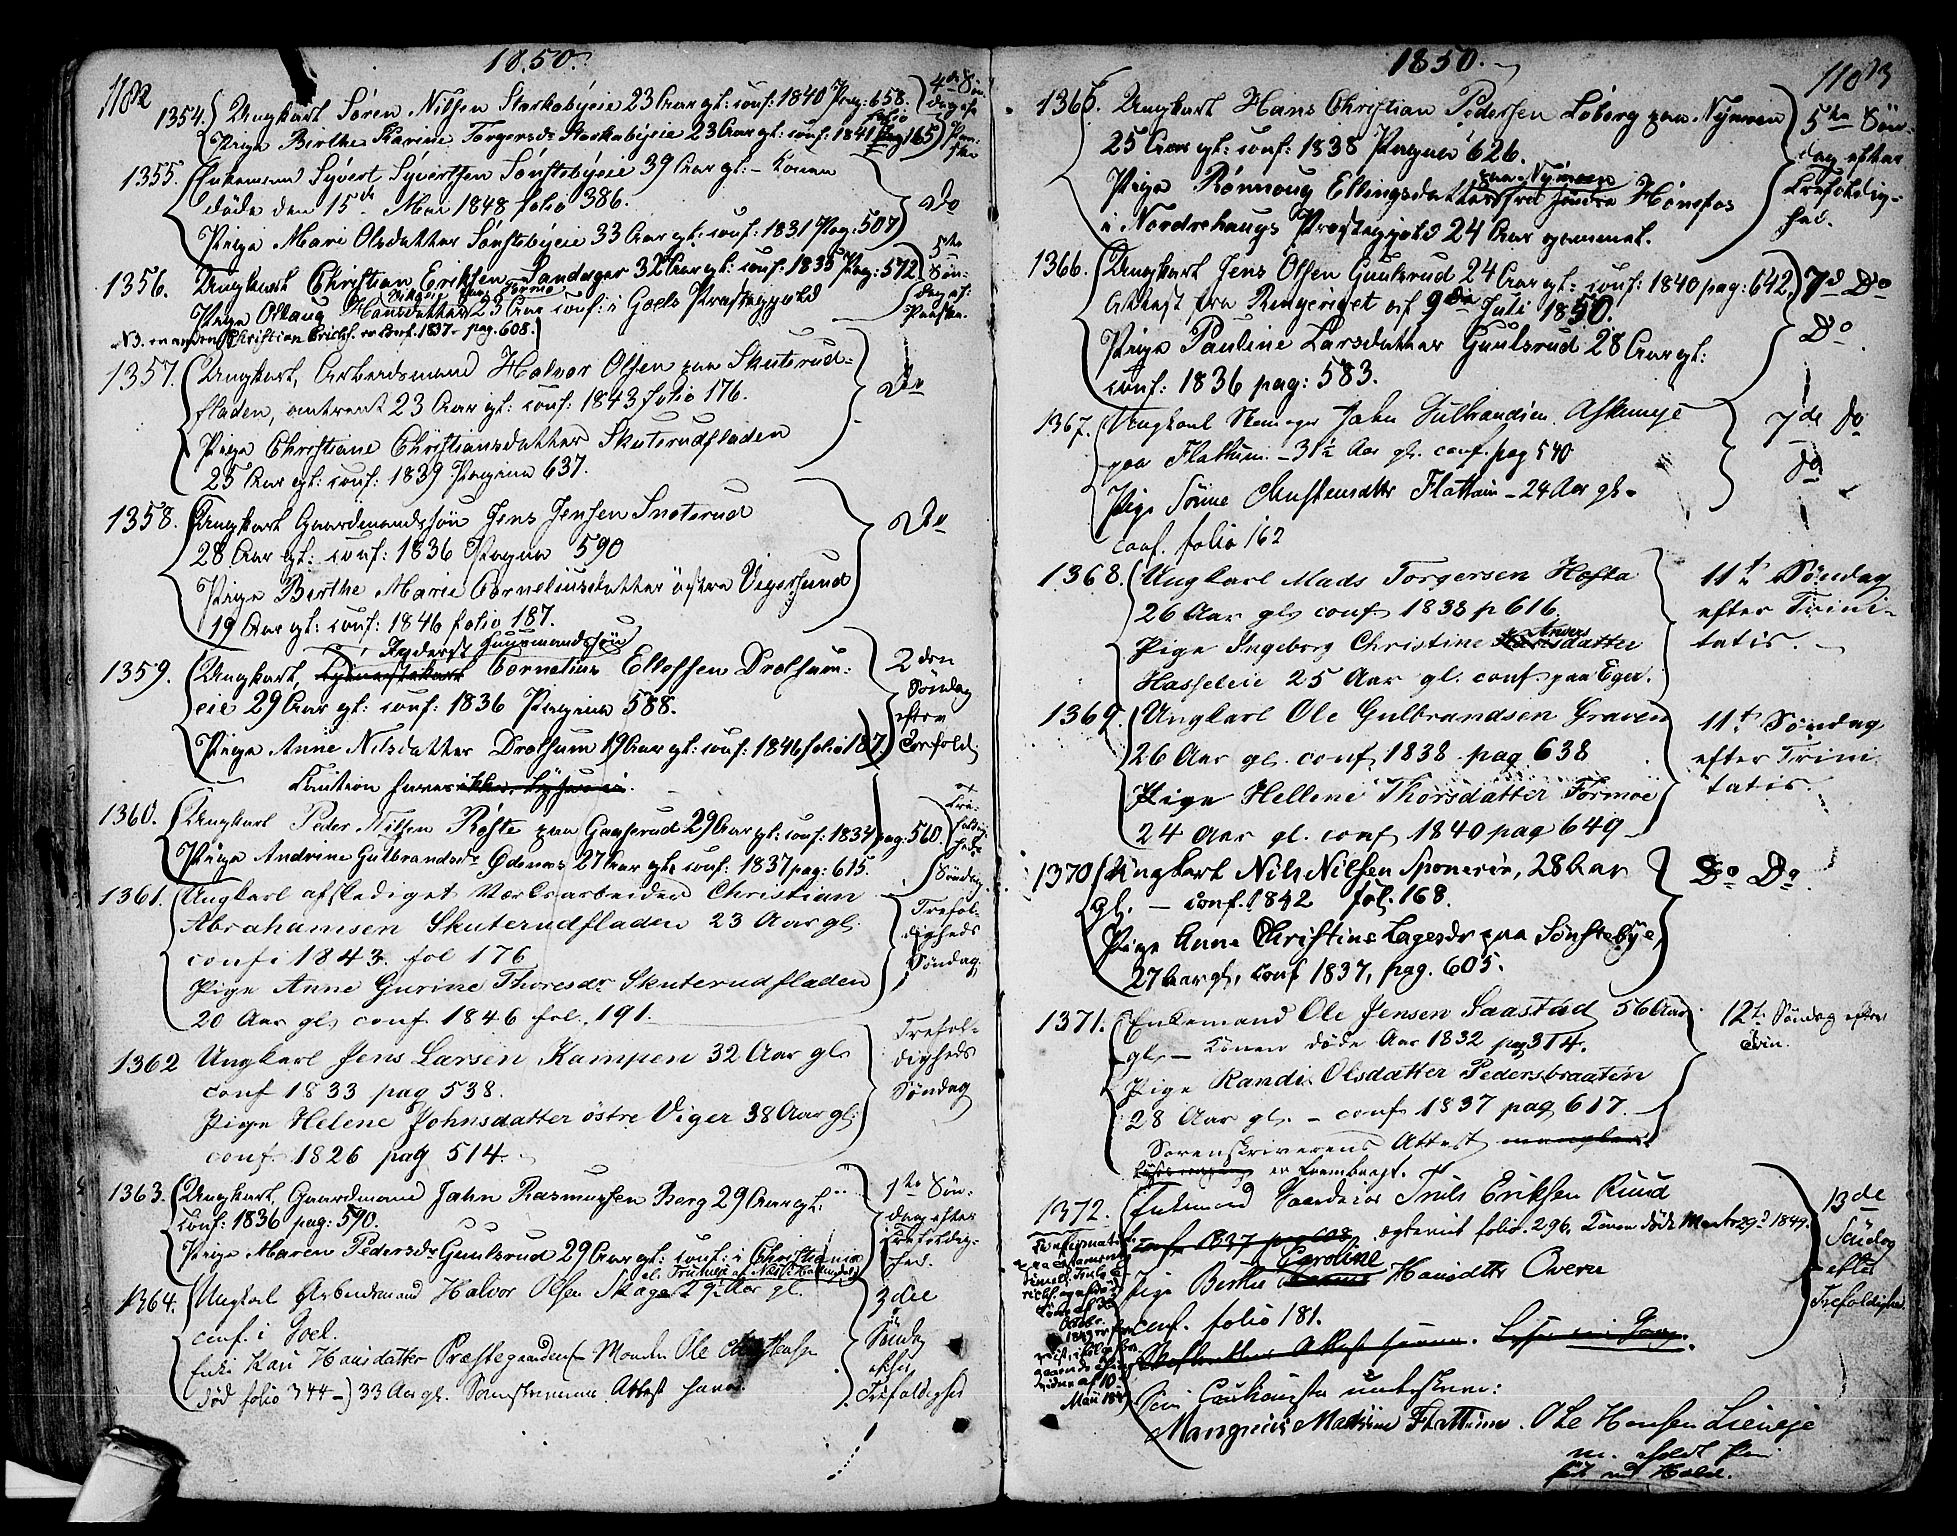 1850.
1182
1354. Ungkarl Søren Nilsen Storkebyeie 23 Aar gl: conf: 1840 Pag: 658.
4de Søn-
Pige Birthe Karine Torgersdr Storkebyeie 23 Aar gl: conf: 1841 folio 165
1355. Enkemand Syvert Syvertsen Sønstebyeie 39 Aar gl: - Konen
døde den 15de Mai 1848 folio 386.
Do
Pige Mari Olsdatter Sønstebyeie 33 Aar gl: conf: 1831 Pag: 507
1356. Ungkarl Christian Eriksen Sandager 32 Aar gl: conf: 1835 Pag: 572
5te
Søn-
dag ef:
Paaske.
Pige Oslaug Hansdatter 23 Aar conf: i Goels Præstegjeld
Christian Erichs. conf. 1837 pag: 608.
1357. Ungkarl, Arbeidsmand Halvor Olsen paa Skuterud-
fladen, omtrent 23 Aar gl: conf: 1843 folio 176.
Do
Pige Christiane Christiansdatter Skuterudfladen
25 Aar gl: conf: 1839 Pagina 637.
1358. Ungkarl Gaardmandssøn Jens Jensen Snoterud
28 Aar gl: conf: 1836 Pagina 590
Do
Pige Birthe Marie Corneliusdatter østre Vigersund
19 Aar gl: conf: 1846 folio 187.
1359. Ungkarl, Cornelius Ellefsen Drolsum-
eie 29 Aar gl: conf: 1836 Pagina 588.
2den
Søndag
efter
Trefold
Pige Anne Nilsdatter Drolsum 19 Aar gl: conf: 1846 folio 187
Caution haves
1360. Ungkarl Peder Nilsen Røste paa Gaaserud 29 Aar gl: conf: 1834 pag: 560.
Pige Andrine Gulbrandsdr Ødenæs 27 Aar gl: conf: 1837 pag: 615.
Søndag
1361. Ungkarl afskediget Værksarbeider Christian
Abrahamsen Skuterudfladen 23 Aar gl.
conf: 1843. fol 176
Trefol-
digheds
Søndag
Pige Anne Gurine Thoresdr Skuterudfladen
20 Aar gl, conf 1846 fol. 191.
1362 Ungkarl Jens Larsen Kampen 32 Aar gl.
conf 1833 pag 538.
Trefol-
digheds
Søndag
Pige Helene Johnsdatter østre Viger 38 Aar gl:
conf. 1826 pag 514.
1363. Ungkarl, Gaardmand John Rasmussen Berg 29 Aar gl:
conf: 1836 pag: 590.
1ste Søn-
dag efter
Trefoldig-
hed.
Pige Maren Pedersdr Gunlsrud 29 Aar gl: conf: i Christiania
1364. Ungkarl Arbeidsmand Halvor Olsen Skage 29½ Aar gl.
conf. i Goel.
3die
Søndag
efter
Trefoldighed
Enke Kari Hansdatter Præstegaarden (Manden Ole
død folio 344-) 33 Aar gl. Attest haves
1850.
1183
1365. Ungkarl Hans Christian Pedersen Loberg paa Nymoen
25 Aar gl: conf: 1838 Pagina 626.
5te Søn-
dag efter
Trefoldig-
hed.
paa Nymoen
Pige Rønnoug Ellingsdatter fra søndre Hønefos
i Nordrehougs Præstegjeld 24 Aar gammel.
1366. Ungkarl Jens Olsen Gunlsrud 24 Aar gl: conf: 1840 pag: 642.
7de Do
Attest fra Ringeriget af 9de Juli 1850.
Do
Pige Pauline Larsdatter Gunlsrud 28 Aar gl:
conf: 1836 pag: 583.
1367. Ungkarl John Gulbrandsen Askeneje
paa Flattum - 31½ Aar gl. conf. pag 540
7de Do
Do
Pige Tønne Christensdatter Flattum - 24 Aar gl.
conf. folio 162
1368. Ungkarl Mads Torgersen Hofta
26 Aar gl conf. 1838 p 616.
11te Søndag
efter Trini-
tatis.
Pige Ingeborg Christine Andersdatter
Hasseleie 25 Aar gl. conf paa Eger.
1369. Ungkarl Ole Gulbrandsen Graven
26 Aar gl. conf 1838 pag 638
11te Søndag
efter Trini-
tatis.
Pige Hellene Thorsdatter Formoe
24 Aar gl. conf 1840 pag 649
1370 Ungkarl Nils Nilsen Sponeiie, 28 Aar
gl. - conf. 1842 fol. 168.
Do Do
Pige Anne Christine Lagesdr paa Sønstebye,
27 Aar gl, conf 1837, pag. 605.
1371. Enkemand Ole Jensen Saastad 56 Aar
gl. - Konen døde Aar 1832 pag 314.
12te Søndag efter
Trin.
Pige Randi Olsdatter Pedersbraaten
28 Aar gl. - conf 1837 pag 617.
Sorenskriverens Attest
er frembragt.
1372. Enkemand Truls Eriksen Ruud
folio 296, Konen døde Marts 29de 1849.
13de
Søndag
efter
Trefoldighed
Pige Berthe Caroline Hansdatter Overn
conf. folio 181.
Mangnus Madsen Flattum. Ole Hansen Lieneje